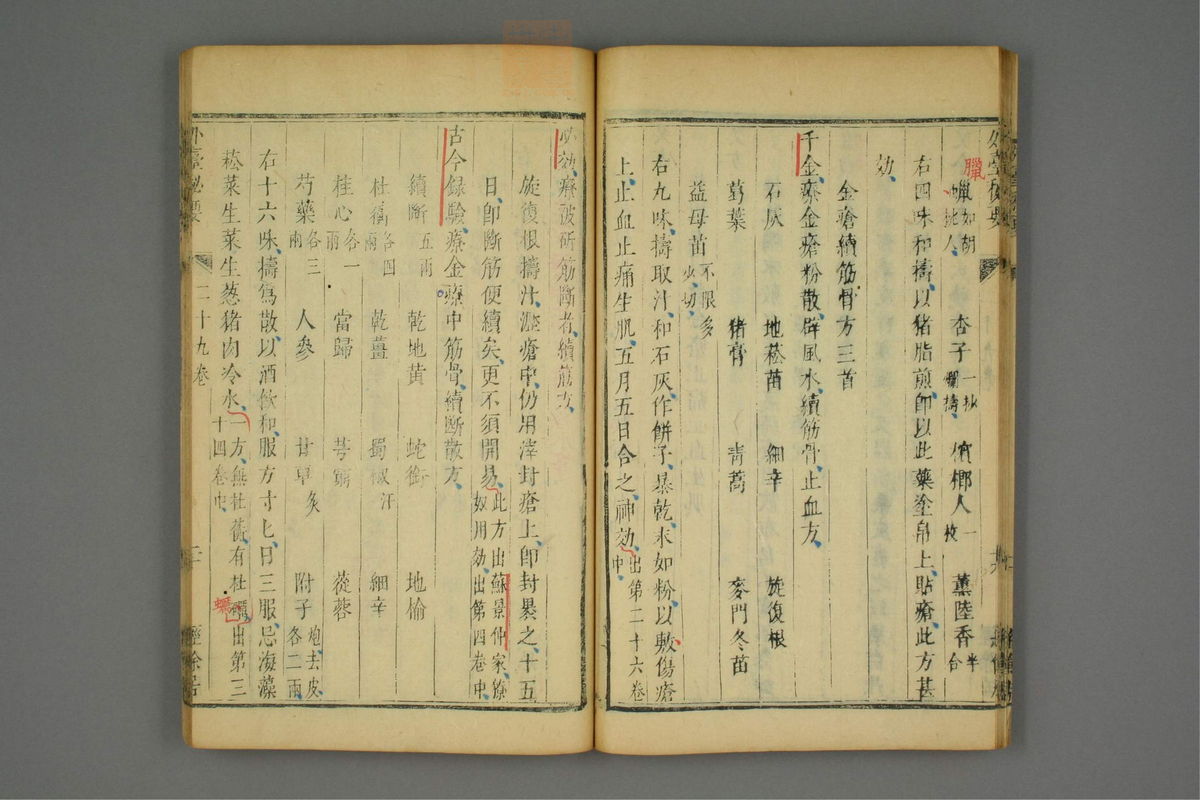 蠟如胡桃人 杏子一抄爛擣 檳榔人一枚 薰陸香半合
右四味和擣以猪脂煎即以此藥塗帛上貼瘡此方甚
効
金瘡續筋骨方三首
千金療金瘡粉散辟風水續筋骨止血方
石灰 地菘苗 細辛 旋復根
葛葉 猪膏 青蒿 麥門冬苗
益母苗不限多少切
右九味擣取汁和石灰作餅子暴乾末如粉以敷傷瘡
上止血止痛生肌五月五日合之神効出第二十六卷中
必効療被斫筋斷者續筋方
旋復根擣汁瀝瘡中仍用滓封瘡上即封暴之十五
日即斷筋便續矣更不須開易此方出蘇景仲家獠奴用効出第四卷中
古今録驗療金瘡中筋骨續斷散方
續斷五兩 乾地黄 蛇銜 地榆
杜蘅各四兩 乾薑 蜀椒汗 細辛
桂心各一兩 當歸 芎藭 蓯蓉
芍藥各三兩 人參 甘草炙 附子炮去皮各二兩
右十六味擣爲散以酒飲和服方寸匕日三服忌海藻
菘菜生菜生葱猪肉冷水一方無杜蘅有杜蠣出第三十四卷中
外臺秘要 二十九卷 經餘居